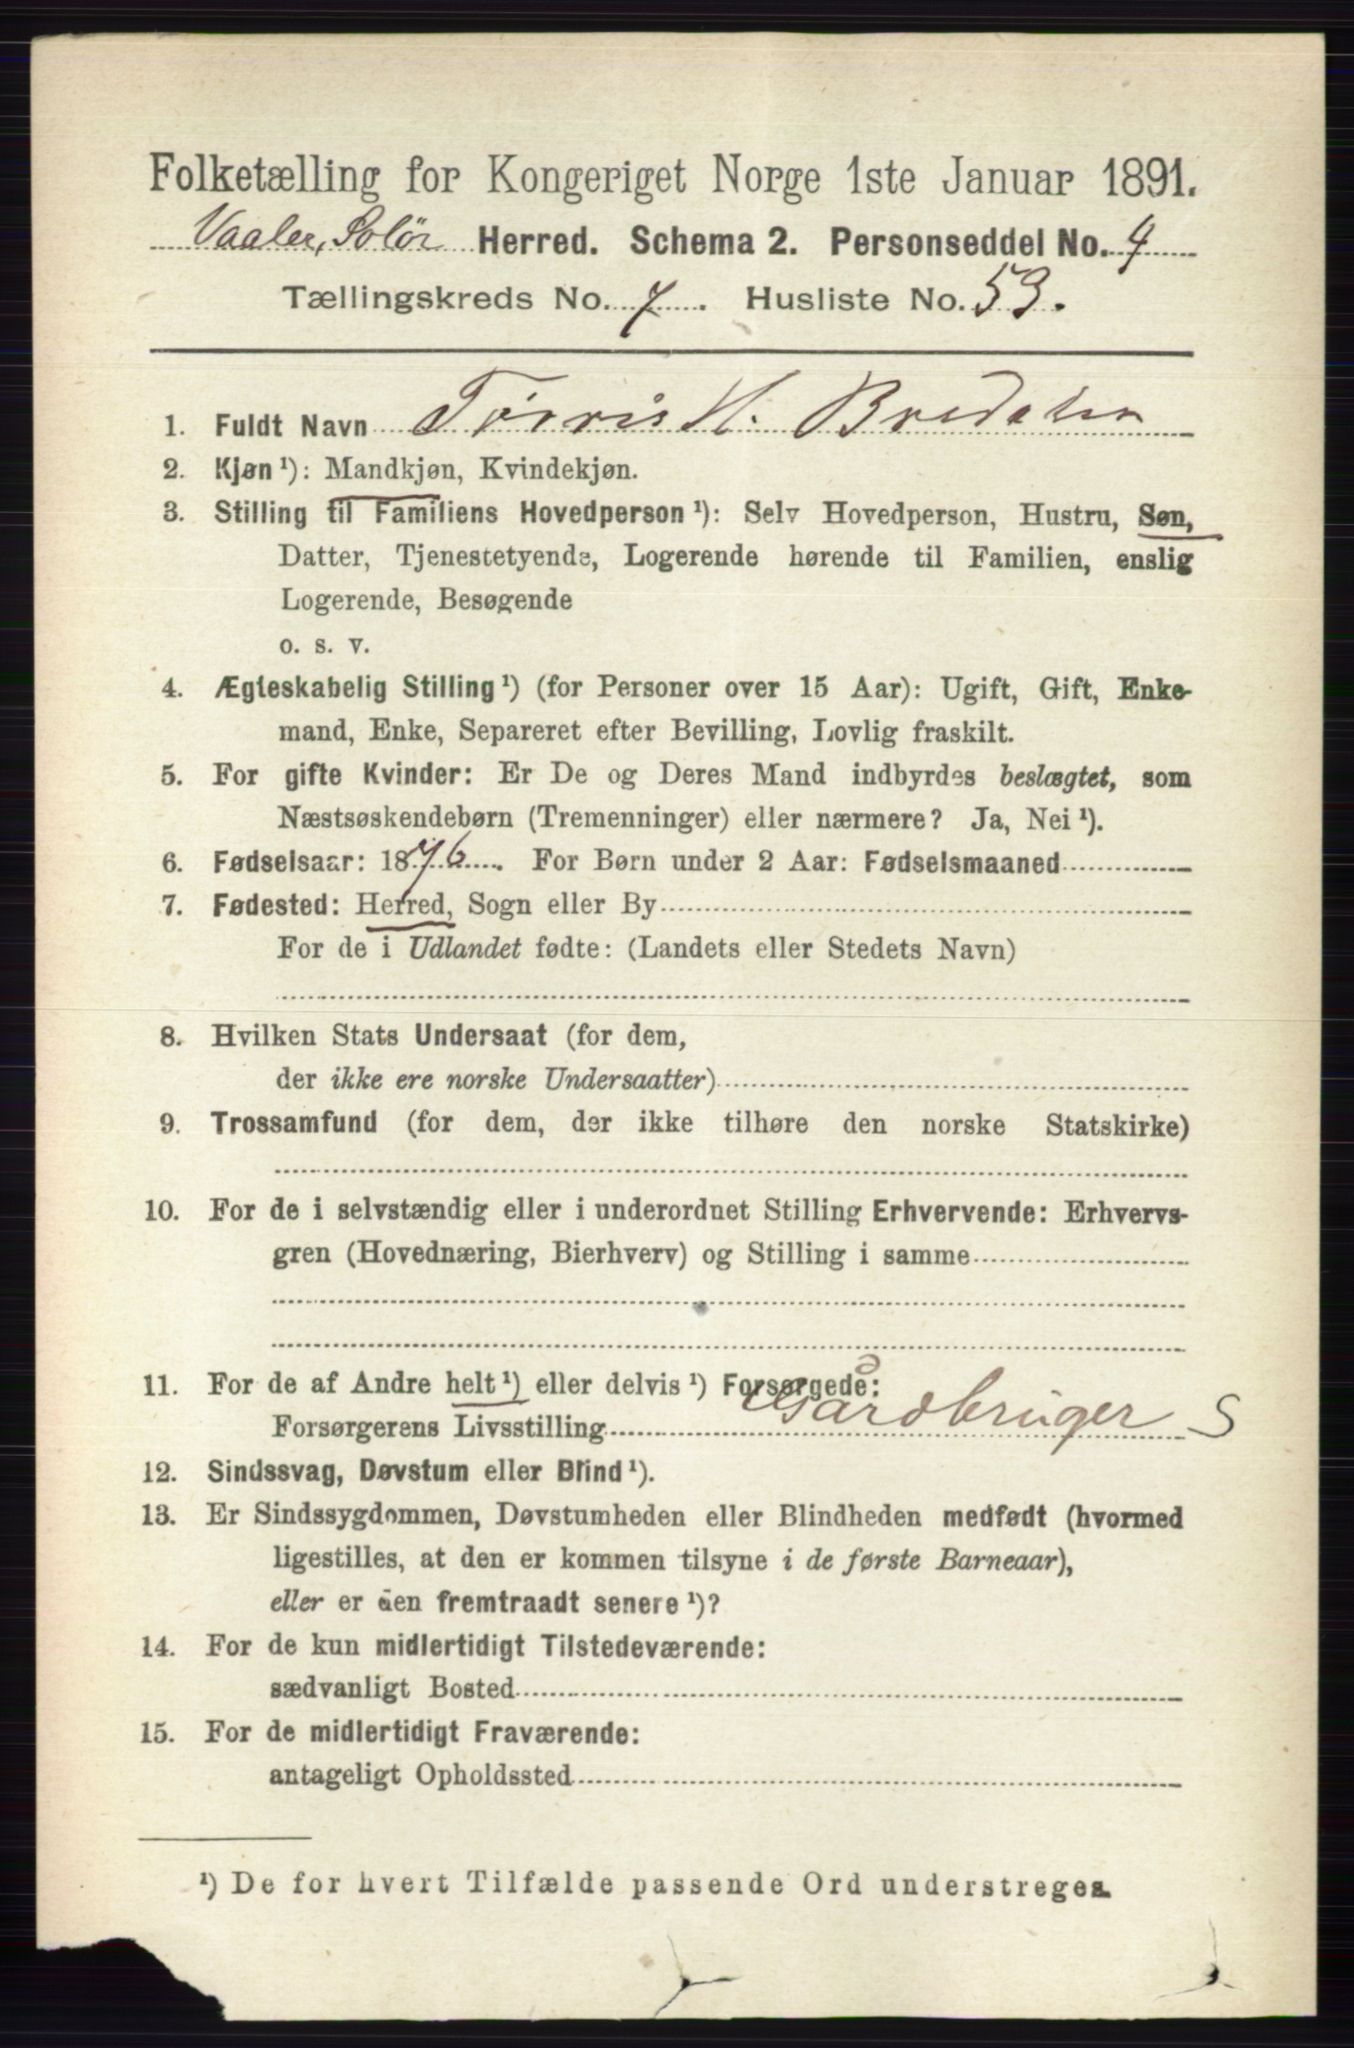 Folketælling for Kongeriget Norge 1ste Januar 1891.
Vaaler, Solør Herred. Schema 2. Personseddel No. 4
Tællingskreds No. 7. Husliste No. 53.
1. Fuldt Navn Torris H. Bredalen
2. Kjøn ¹): Mandkjøn, Kvindekjøn.
3. Stilling til Familiens Hovedperson ¹): Selv Hovedperson, Hustru, Søn,
Datter, Tjenestetyende, Logerende hørende til Familien, enslig
Logerende, Besøgende
o. s. v.
4. Ægteskabelig Stilling ¹) (for Personer over 15 Aar): Ugift, Gift, Enke-
mand, Enke, Separeret efter Bevilling, Lovlig fraskilt.
5. For gifte Kvinder: Er De og Deres Mand indbyrdes beslægtet, som
Næstsøskendebørn (Tremenninger) eller nærmere? Ja, Nei ¹).
6. Fødselsaar: 1876. For Børn under 2 Aar: Fødselsmaaned
7. Fødested: Herred, Sogn eller By
For de i Udlandet fødte: (Landets eller Stedets Navn)
8. Hvilken Stats Undersaat (for dem,
der ikke ere norske Undersaatter)
9. Trossamfund (for dem, der ikke tilhøre den norske Statskirke)
10. For de i selvstændig eller i underordnet Stilling Erhvervende: Erhvervs-
gren (Hovednæring, Bierhverv) og Stilling i samme
11. For de af Andre helt ¹) eller delvis ¹) Forsørgede:
Forsørgerens Livsstilling Gårdbruger S
12. Sindssvag, Døvstum eller Blind ¹).
13. Er Sindssygdommen, Døvstumheden eller Blindheden medfødt (hvormed
ligestilles, at den er kommen tilsyne i de første Barneaar),
eller er den fremtraadt senere ¹)?
14. For de kun midlertidigt Tilstedeværende:
sædvanligt Bosted
15. For de midlertidigt Fraværende:
antageligt Opholdssted
¹) De for hvert Tilfælde passende Ord understreges.